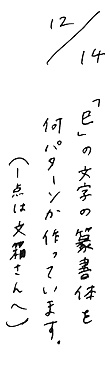 12/14
「巳」の文字の篆書体を
何パターンか作っています。
(一点は文箱さんへ)